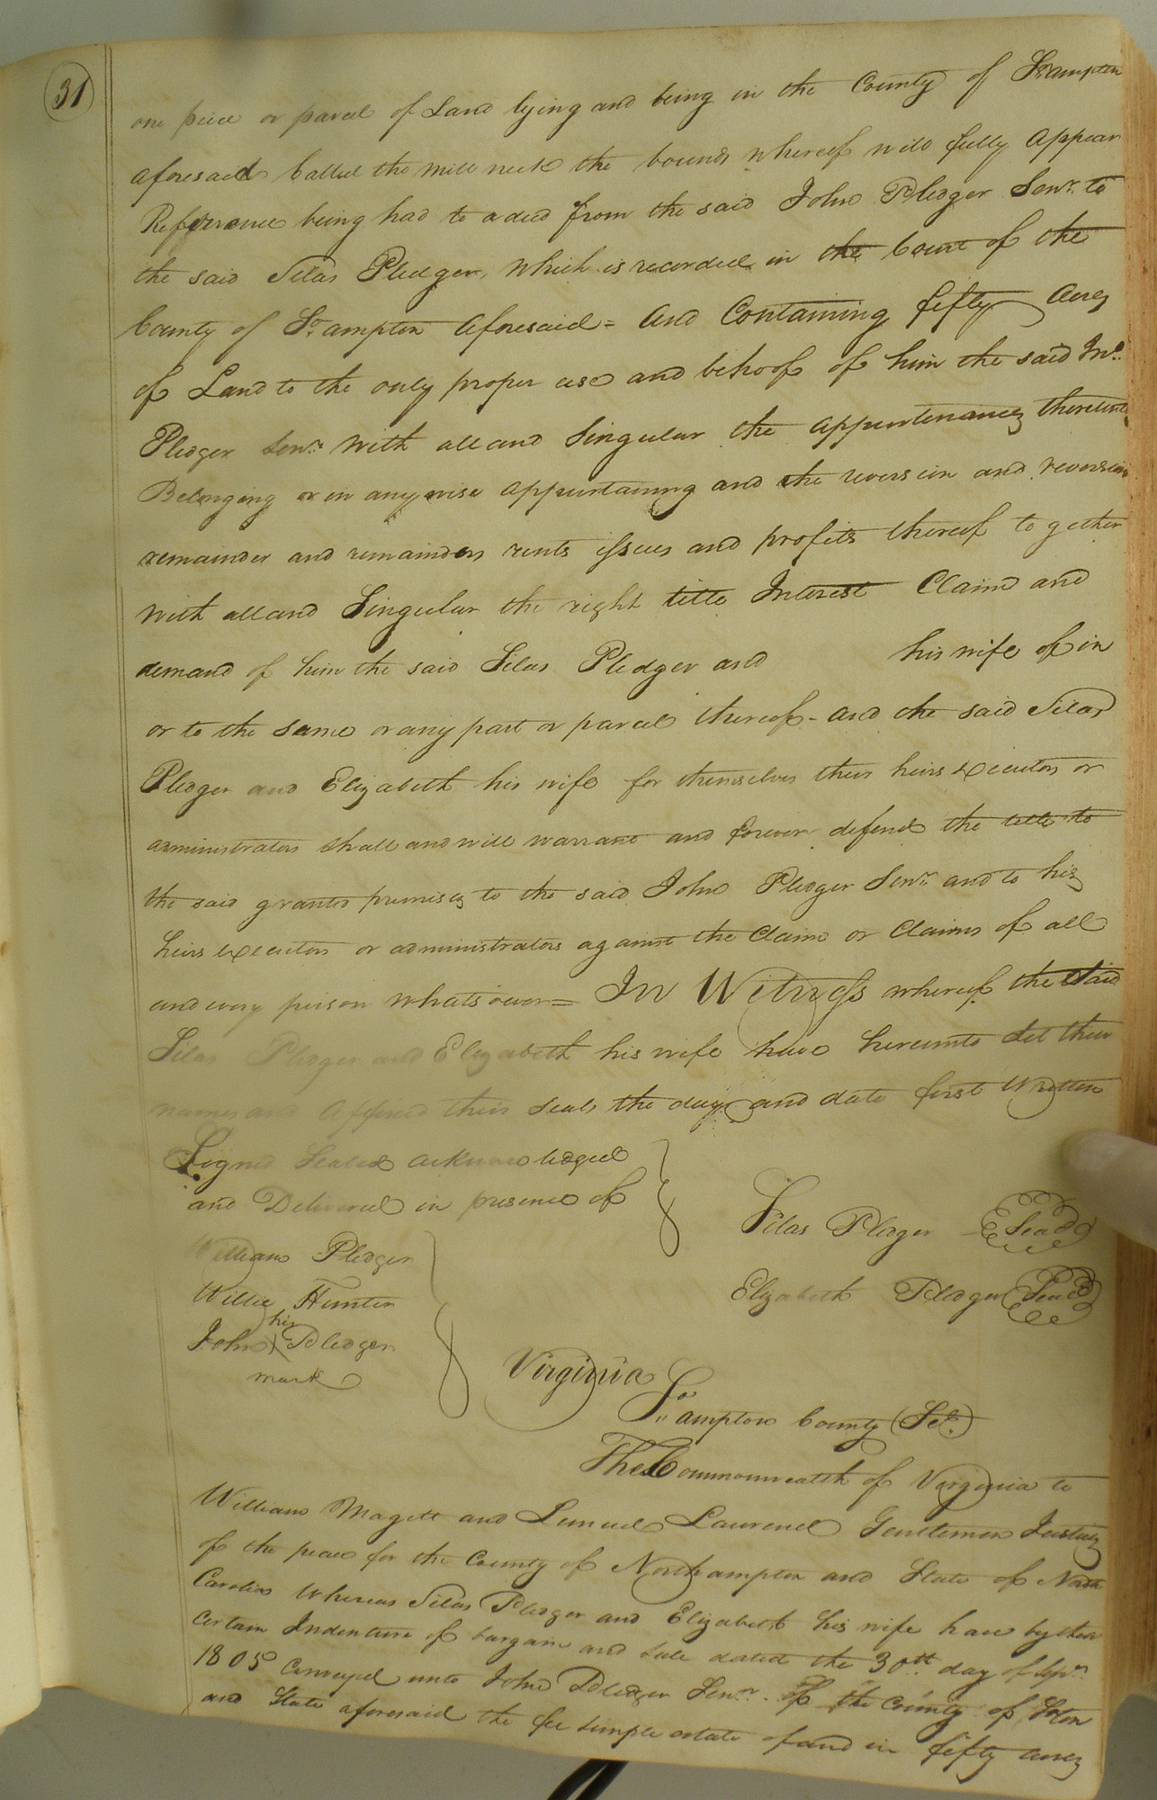 31
one piece or parcel of Land lying and being in the County of So.ampton
aforesaid Called the mill neck the bounds whereof will fully appear
Refference being had to a deed from the said John Pledger Senr. to
the said Silas Pledger, which is recorded in the Court of the
County of So.ampton aforesaid = And Containing fifty Acres
of Land to the only proper use and behoof of him the said Jno.
Pledger Senr. With all and Singular the appurtenances thereunto
Belonging or in anywise appurtaining and the reversion and reversions
remainder and remainders rents issues and profits thereof to gether
With all and Singular the right title Interest Claim and
demand of him the said Silas Pledger and his wife of in
or to the same or any part or parcel thereof - and the said Silas
Pledger and Elizabeth his wife for themselves their heirs executors or
administrators shall and will warrant and forever defend the title to
the said granted premises to the said John Pledger Senr. and to his
heirs executors or administrators against the Claim or Claims of all
and every person whatsoever = In Witness whereof the Said
Silas Pledger and Elizabeth his wife have hereunto Set their
names and affixed their Seals the day and date first Written
Signed Sealed acknowledged
and Delivered in presence of
Silas Pledger Seal
William Pledger
Elizabeth Pledger Seal
Willie Hunter
his
John X Pledger
mark
Virginia
So.ampton County (Sct.)
The Commonwealth of Virginia to
William Magett and Lemuel Laurence Gentlemen Justices
of the peace for the County of Northampton and State of North
Carolina Whereas Silas Pledger and Elizabeth his wife have by their
Certain Indenture of bargain and Sale dated the 30th day of
1805 Conveyed unto John Pledger Senr. of the County of Soton
and State aforesaid the fee simple estate of and in fifty acres